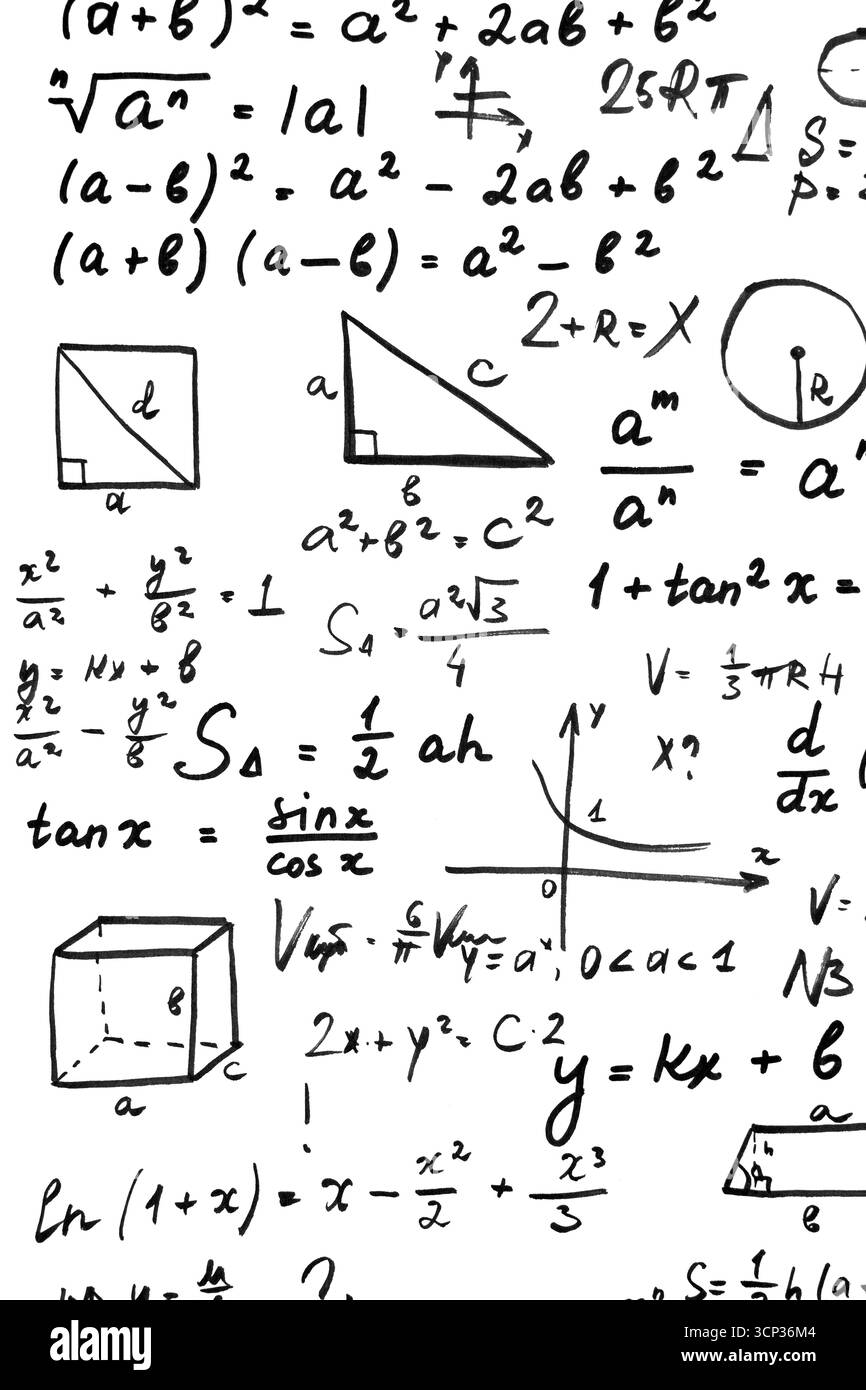 (a+b)² = a² + 2ab + b²
ⁿ√aⁿ = |a|
y
x
25Rπ
S=
P=
(a-b)² = a² - 2ab + b²
(a+b)(a-b) = a² - b²
2+R=X
R
d
a
a
c
b
aᵐ/aⁿ = a
a²+b²=c²
x²/a² + y²/b² = 1
S△ = a²√3/4
1 + tan² x =
y = kx + b
V = 1/3 πRH
x²/a² - y²/b
S△ = 1/2 ah
y
x?
d/dx (
1
tan x = sin x/cos x
0
x
V=
y = aˣ, 0<a<1
N3
b
a
c
2x+y²= C·2
y = kx + b
a
h
b
ln(1+x) = x - x²/2 + x³/3
?
S= 1/2 h(a
alamy
Image ID: 3CP36M4
www.alamy.com